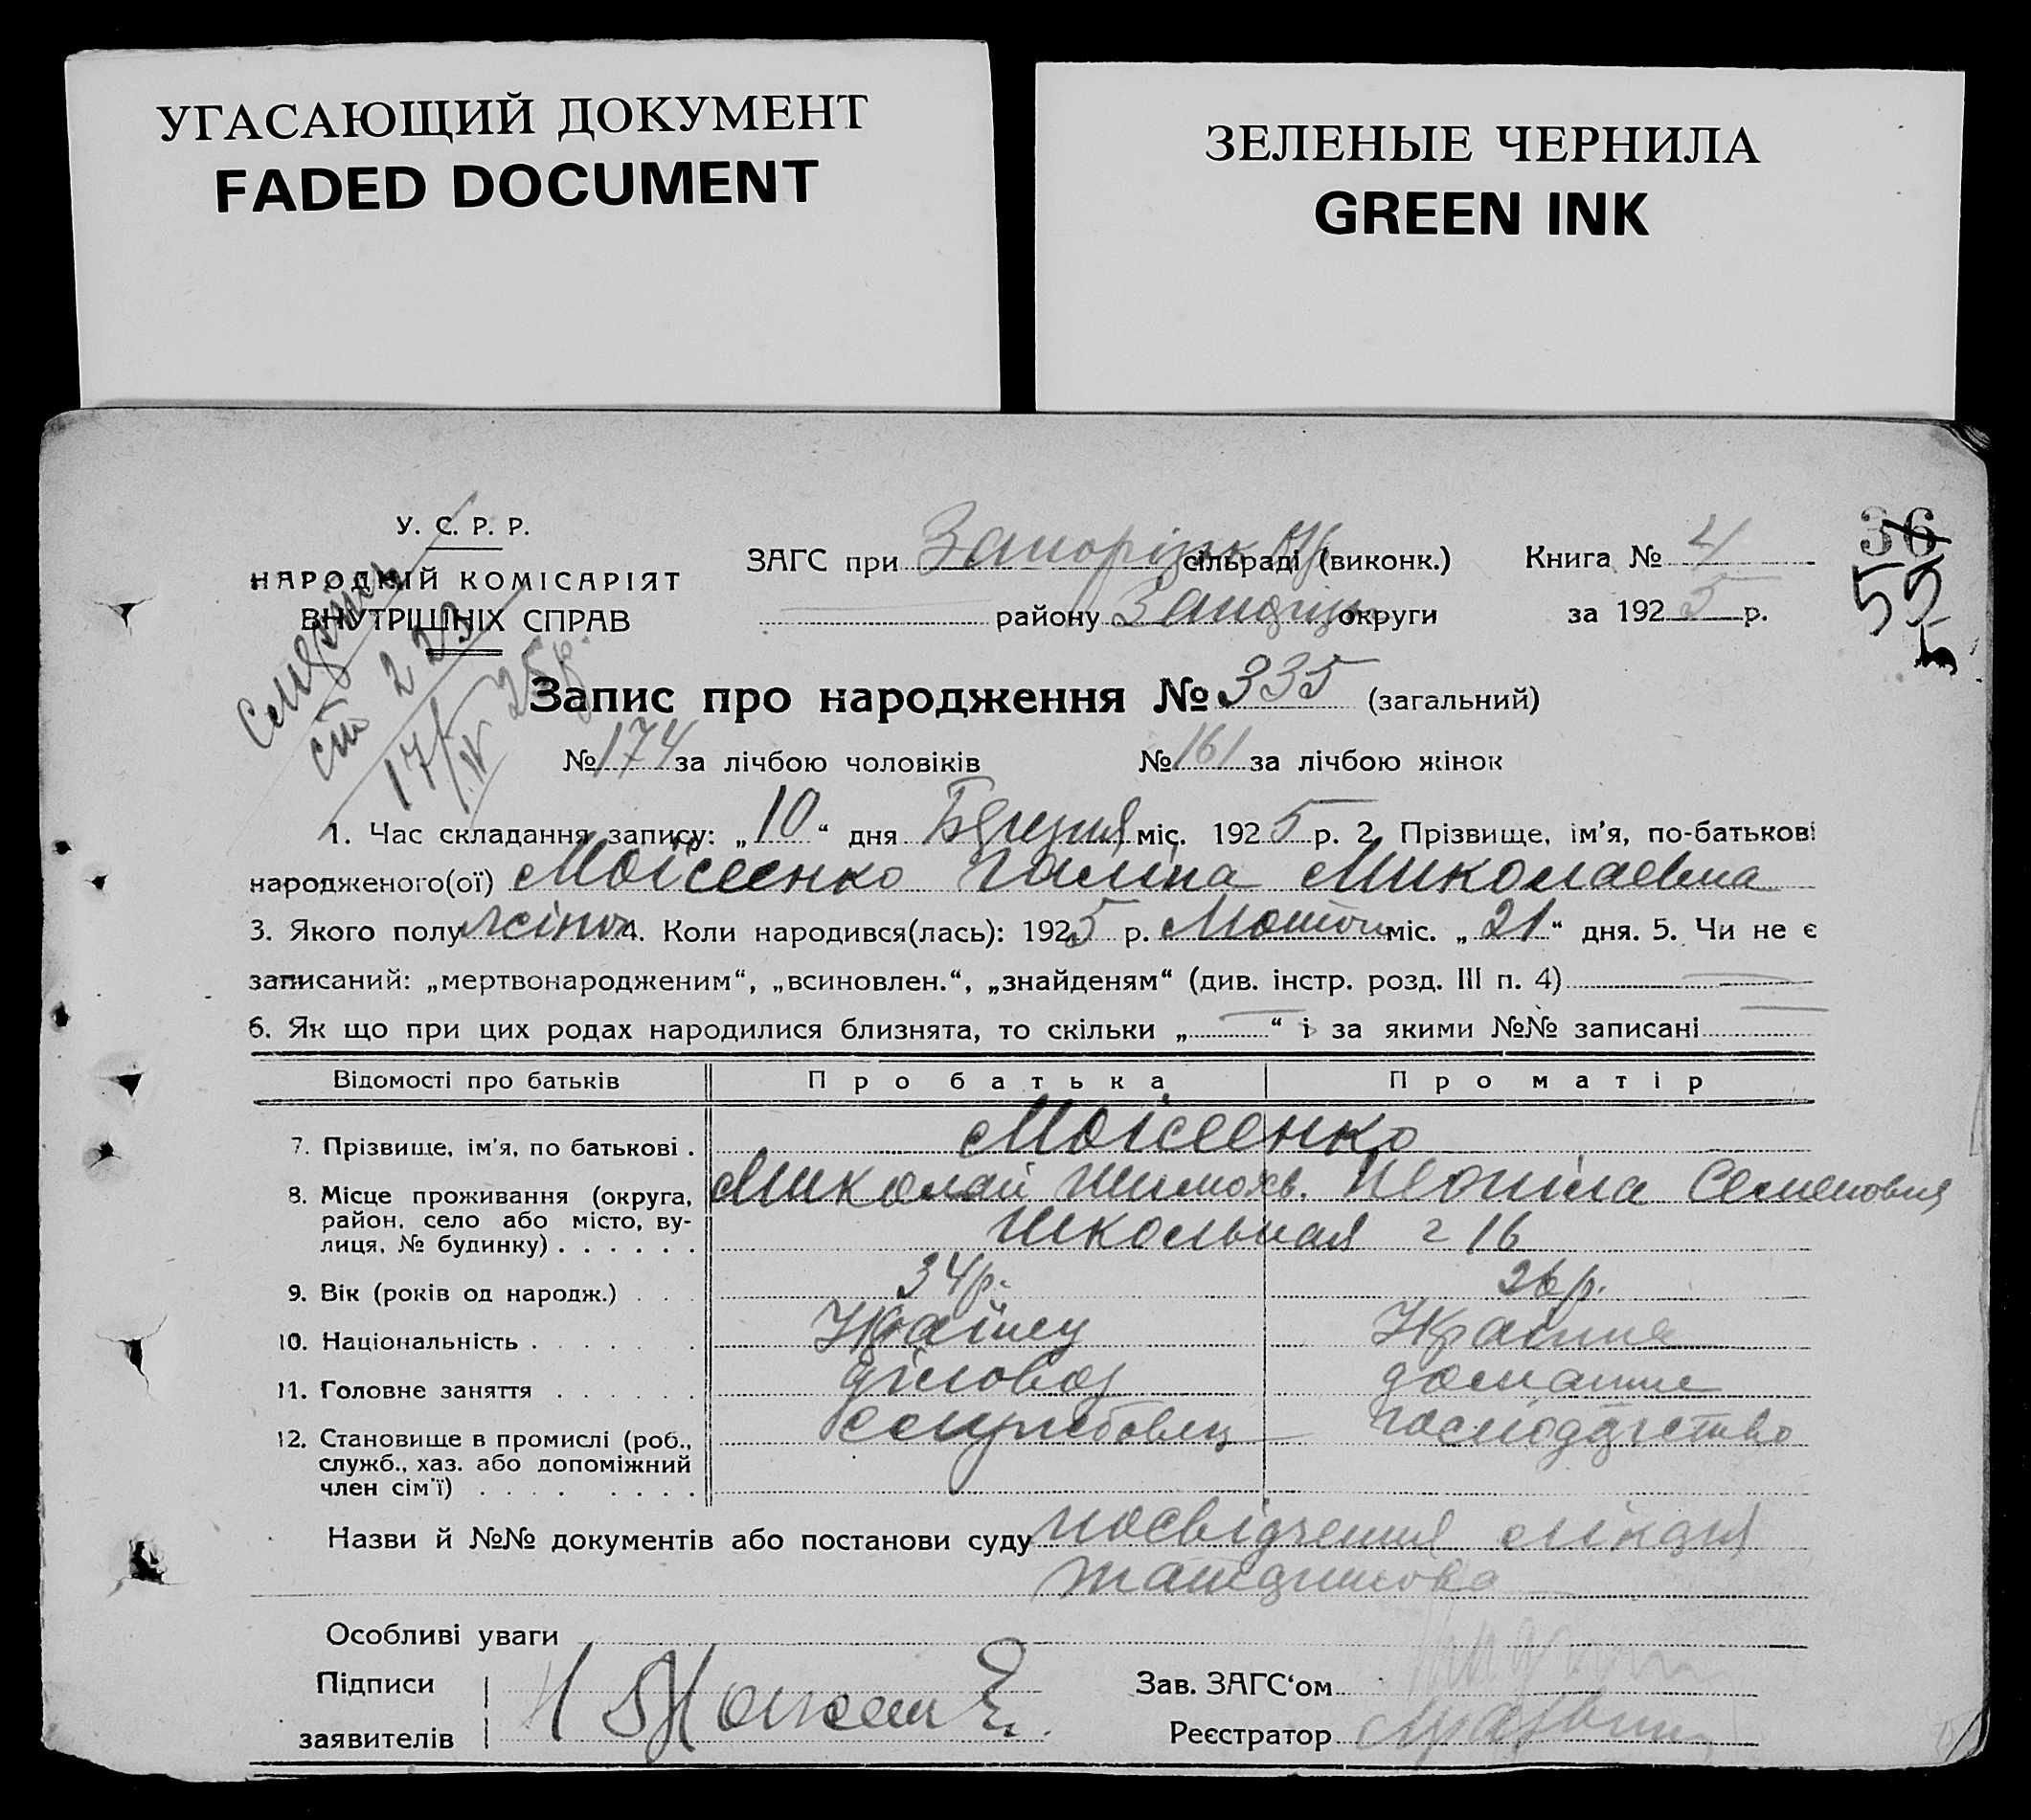 УГАСАЮЩИЙ ДОКУМЕНТ
FADED DOCUMENT
ЗЕЛЕНЫЕ ЧЕРНИЛА
GREEN INK
У. С. Р. Р.
НАРОДНІЙ КОМІСАРІЯТ
ВНУТРІШНІХ СПРАВ
ЗАГС при Запорізьк сільраді (виконк.)
Книга № 4
району Запоріз округи
за 1925 р.
36
55
Запис про народження № 335 (загальний)
№ 174 за лічбою чоловіків № 161 за лічбою жінок
1. Час складання запису: „10“ дня Березня міс. 1925 р. 2. Прізвище, ім'я, по-батькові
народженого(ої) Моісеенко Галіна Миколаевна
3. Якого полу жіноч 4. Коли народився(лась): 1925 р. Лютого міс. „21“ дня. 5. Чи не є
записаний: „мертвонародженим“, „всиновлен.“, „знайденям“ (див. інстр. розд. III п. 4)
6. Як що при цих родах народилися близнята, то скільки „ “ і за якими №№ записані
Відомості про батьків Про батька Про матір
7. Прізвище, ім'я, по батькові . Моісеенко
8. Місце проживання (округа, Миколай Тимохв. Неоніла Семеновня
район, село або місто, ву-
лиця, № будинку) . . . . . . Школьная 2 16
9. Вік (років од народж.) . . . 34р. 26р.
10. Національність . . . . . . Украінец Украінка
11. Головне заняття . . . . . . діловод домашне
12. Становище в промислі (роб., служебовец господарство
служб., хаз. або допоміжний
член сім'ї) . . . . . . . . .
Назви й №№ документів або постанови суду посвідчення лікаря
Особливі уваги
Підписи
заявителів
Зав. ЗАГС'ом
Реєстратор